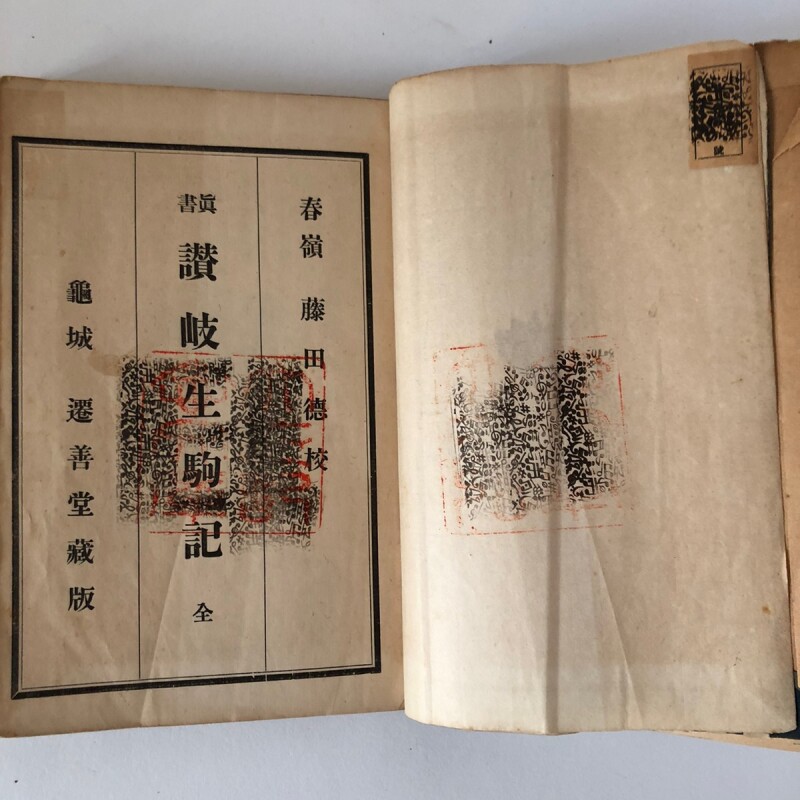 春嶺 藤田德校
眞書 讃岐生駒記 全
龜城 遷善堂藏版
號